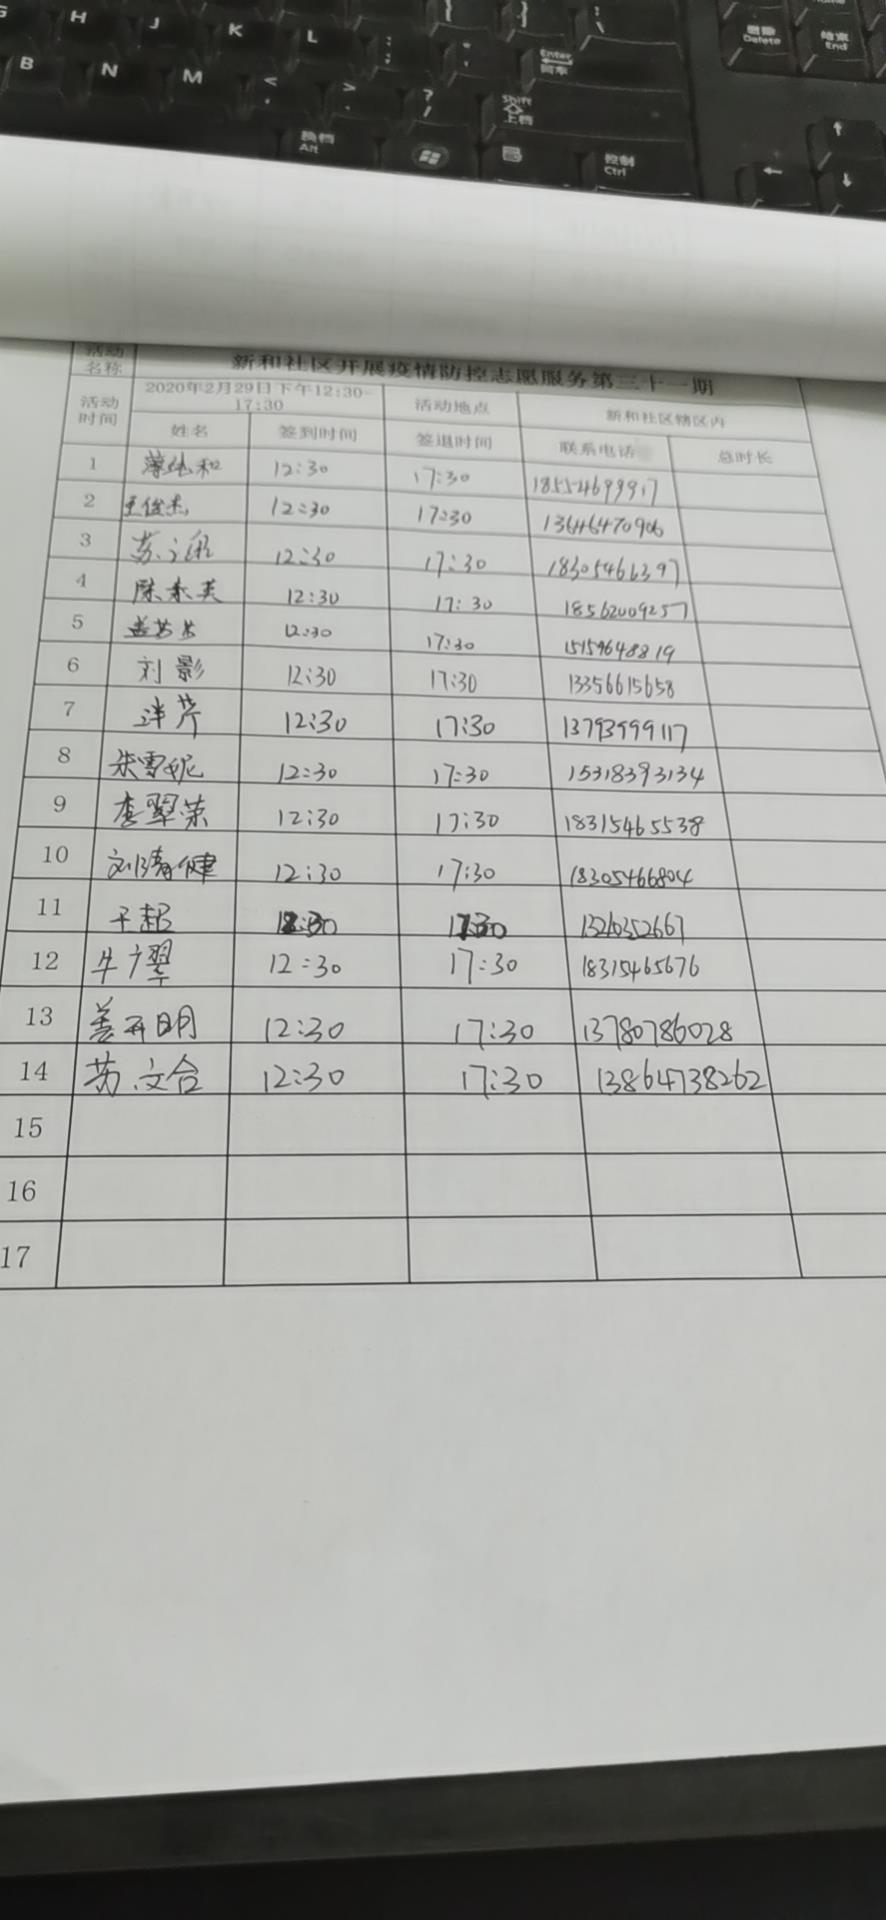 H J K L { } : \ Enter 回车 Delete 结束 End
B N M < , > . ? / Shift 上档
换档 Alt 控制 Ctrl
活动名称 新和社区开展疫情防控志愿服务第三十一期
活动时间 2020年2月29日下午12:30-17:30 活动地点 新和社区辖区内
姓名 签到时间 签退时间 联系电话 总时长
1 12:30 17:30 18554699917
2 王俊杰 12:30 17:30 13646470906
3 苏 12:30 17:30 18305466397
4 陈来美 12:30 17:30 18562009257
5 12:30 17:30 15159648819
6 刘影 12:30 17:30 13356615658
7 洋芹 12:30 17:30 13793999117
8 朱雪妮 12:30 17:30 15318393134
9 李翠荣 12:30 17:30 18315465538
10 刘清健 12:30 17:30 18305466804
11 王超 12:30 17:30 1326352667
12 牛广翠 12:30 17:30 18315465676
13 盖开明 12:30 17:30 13780786028
14 苏文合 12:30 17:30 13864738262
15
16
17